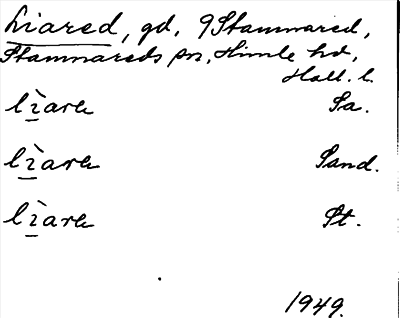 Liared, gd, 9 Stamnared,
Stamnareds sn, Himle hd,
Hall. l.
lìarɐ Sa.
lìarɐ Sand.
lìarɐ St.
1949.